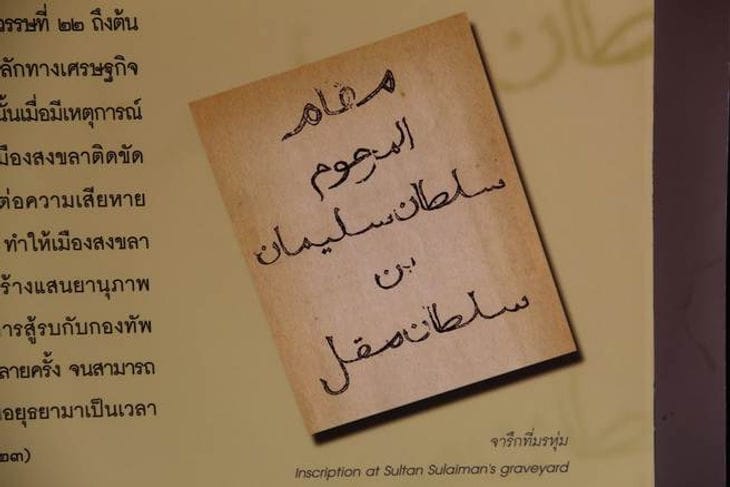 วรรษที่ ๒๒ ถึงต้น
ลักทางเศรษฐกิจ
นั้นเมื่อมีเหตุการณ์
เมืองสงขลาติดขัด
ต่อความเสียหาย
ทำให้เมืองสงขลา
ร้างแสนยานุภาพ
ารสู้รบกับกองทัพ
ลายครั้ง จนสามารถ
อยุธยามาเป็นเวลา
๒๓)
مقام
المرحوم
سلطان سليمان
بن
سلطان مقل
จารึกที่มรหุ่ม
Inscription at Sultan Sulaiman's graveyard